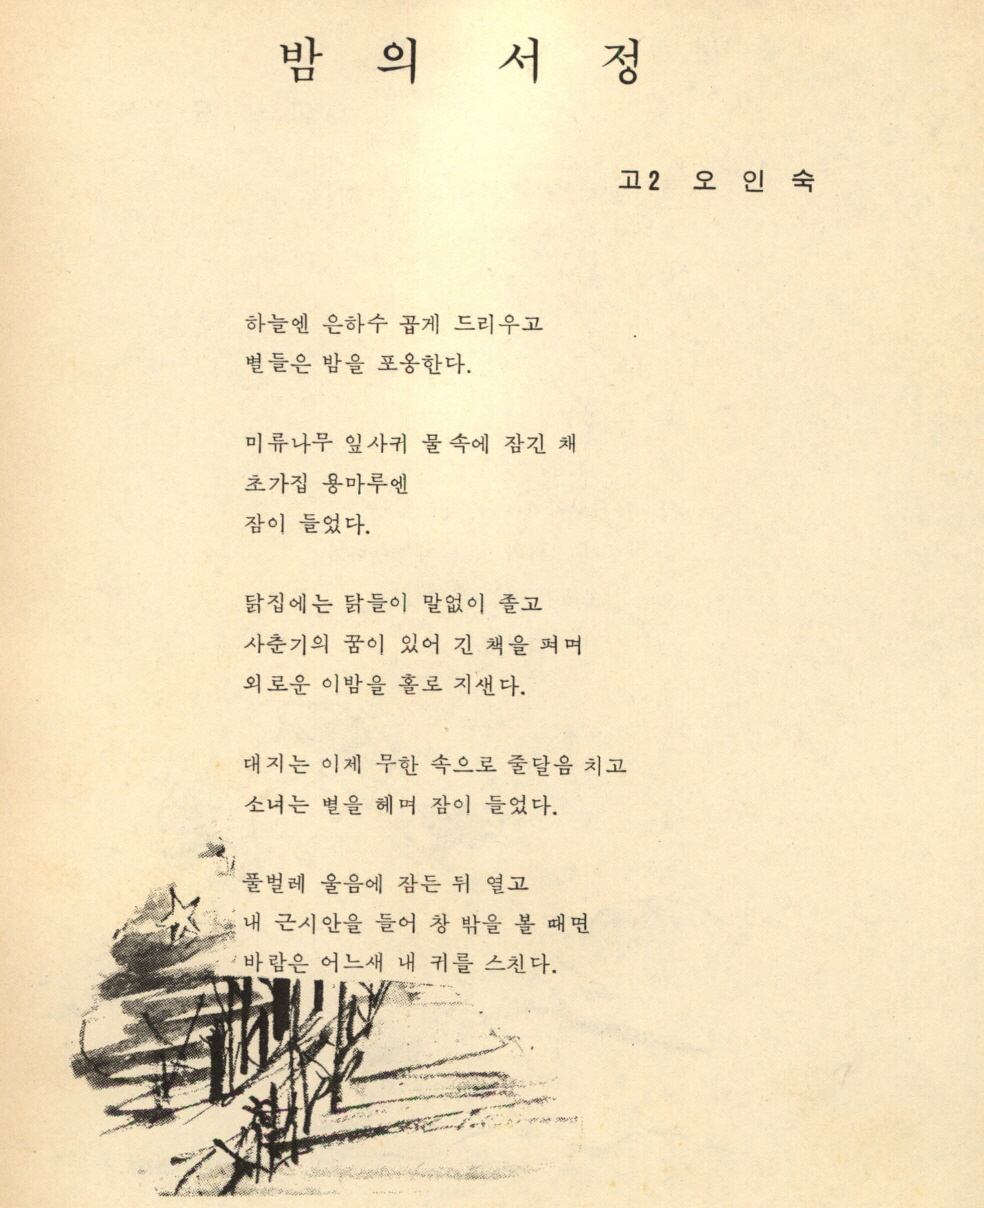 밤의 서정
고2 오인숙
하늘엔 은하수 곱게 드리우고
별들은 밤을 포옹한다.
미류나무 잎사귀 물 속에 잠긴 채
초가집 용마루엔
잠이 들었다.
닭집에는 닭들이 말없이 졸고
사춘기의 꿈이 있어 긴 책을 펴며
외로운 이밤을 홀로 지샌다.
대지는 이제 무한 속으로 줄달음 치고
소녀는 별을 헤며 잠이 들었다.
풀벌레 울음에 잠든 뒤 열고
내 근시안을 들어 창 밖을 볼 때면
바람은 어느새 내 귀를 스친다.